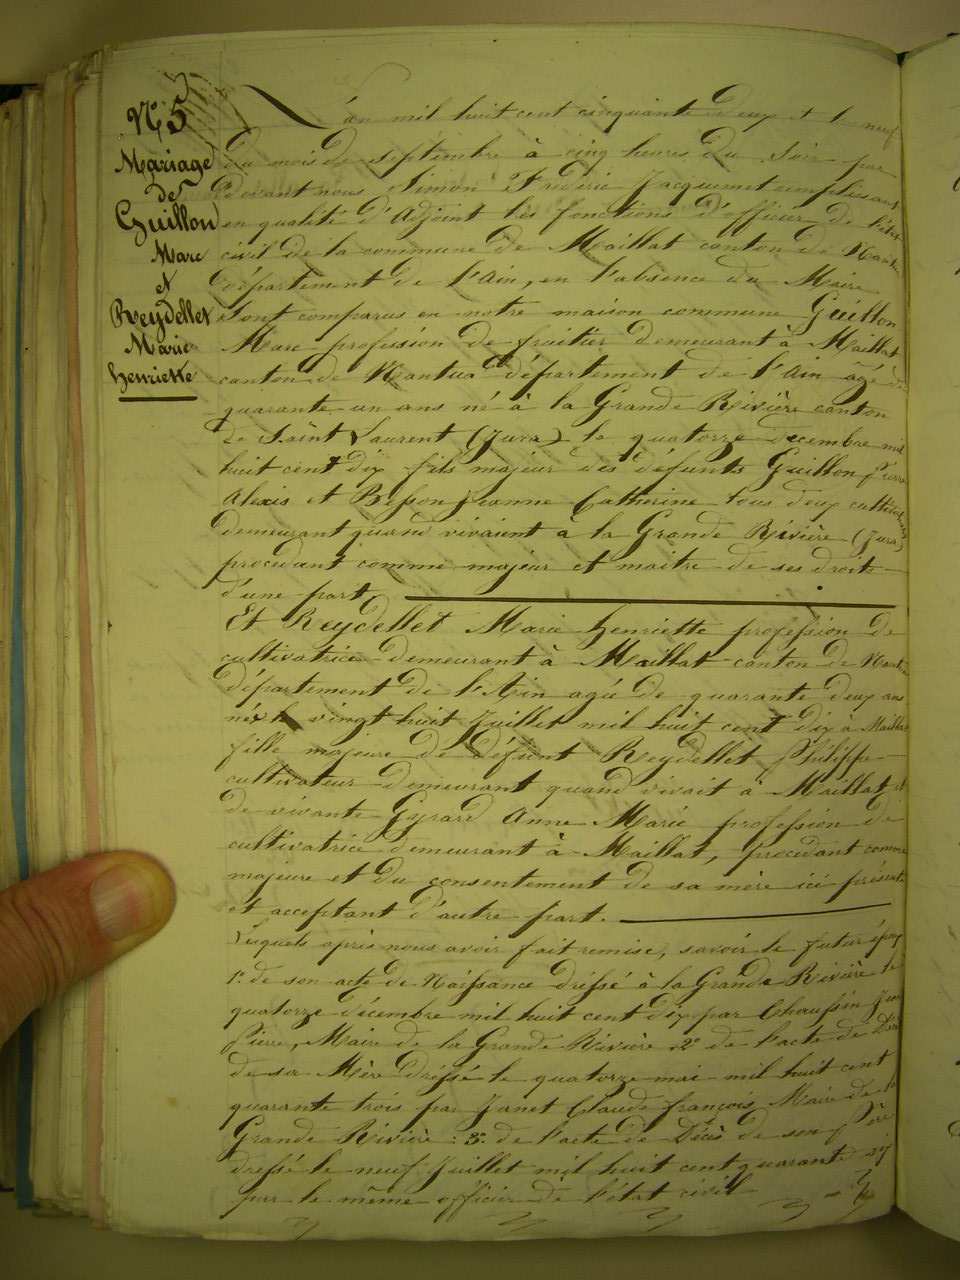 N° 5
Mariage
de
Guillon
Marc
et
Reydellet
Marie
henriette
L'an mil huit cent cinquante deux et le neuf
du mois de septembre à cinq heures du soir par
devant nous Simon Frédéric Jacquemet remplissant
en qualité d'Adjoint les fonctions d'officier de l'état
civil de la commune de Maillat canton de Nantua
département de l'Ain, en l'absence du Maire
sont comparus en notre maison commune Guillon
Marc profession de fruitier demeurant à Maillat
canton de Nantua département de l'Ain agé de
quarante un ans né à la Grande Rivière canton
de Saint Laurent (Jura) le quatorze decembre mil
huit cent dix fils majeur des défunts Guillon Pierre
Alexis et Besson Jeanne Catherine tous deux cultivateurs
demeurant quand vivaient a la Grande Rivière (Jura)
procedant comme majeur et maitre de ses droits
d'une part.
Et Reydellet Marie henriette profession de
cultivatrice demeurant à Maillat canton de Nantua
département de l'Ain agée de quarante deux ans
née le vingt huit Juillet mil huit cent dix à Maillat
fille majeure de défunt Reydellet Philippe
cultivateur demeurant quand vivait à Maillat et
de vivante Gyrard Anne Marie profession de
cultivatrice demeurant à Maillat, procedant comme
majeure et du consentement de sa mère ici présente
et acceptant d'autre part.
Lesquels après nous avoir fait remise, savoir le futur époux
1° de son acte de Naissance dréssé à la Grande Rivière le
quatorze décembre mil huit cent dix par Chaussin Jean
Pierre, Maire de la Grande Rivière 2° de l'acte de Décès
de sa Mère dréssé le quatorze mai mil huit cent
quarante trois par Janet Claude françois Maire de la
Grande Rivière : 3° de l'acte de Décès de son Père
dressé le neuf Juillet mil huit cent quarante six
par le même officier de l'état civil